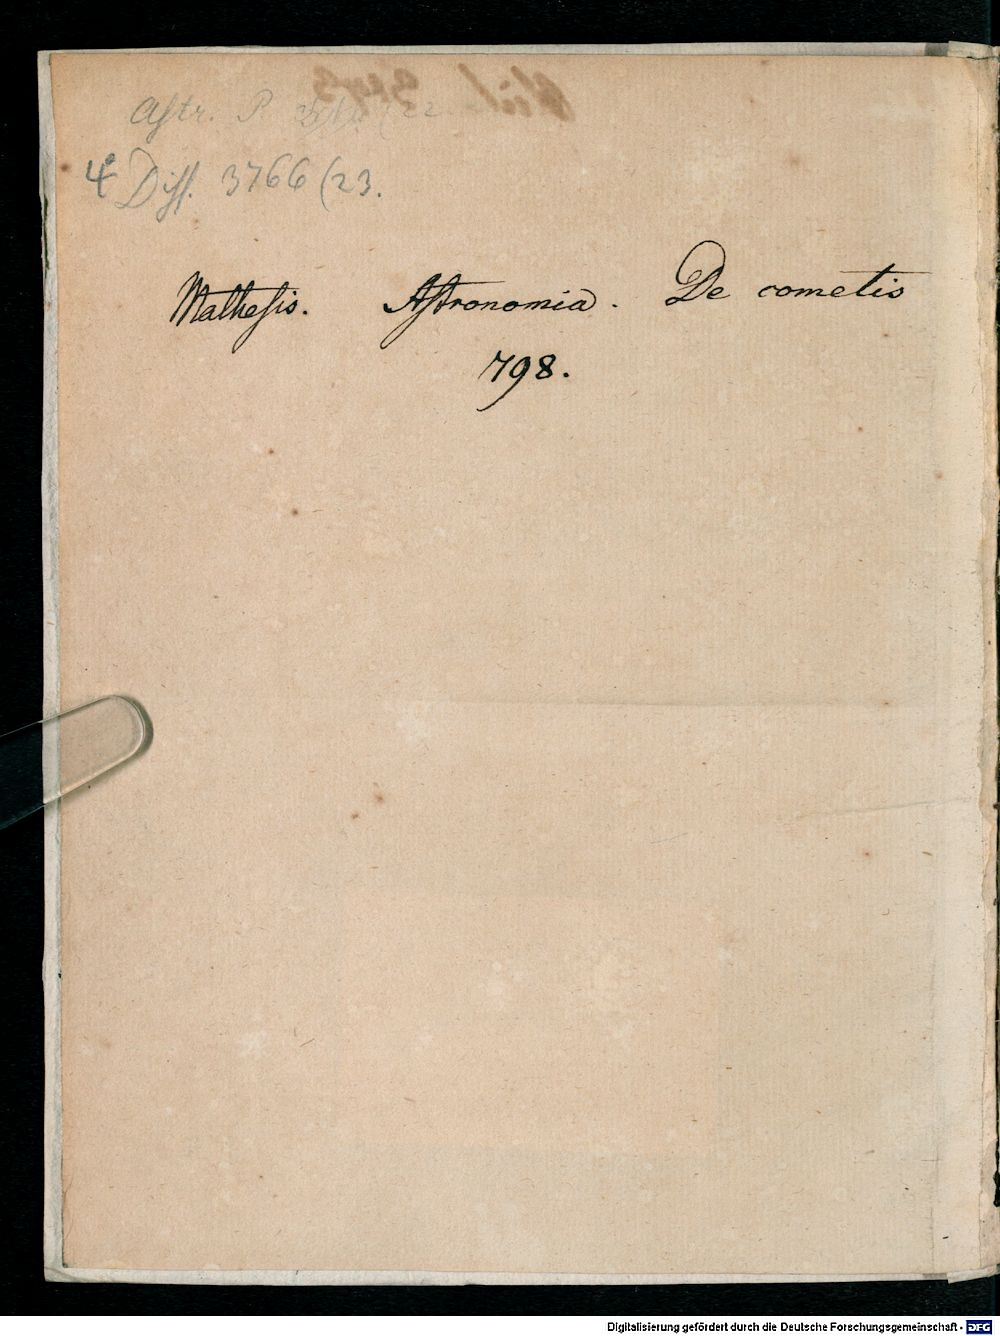 Astr. P. (22
4° Diss. 3766 (23.
Mathesis. Astronomia. De cometis
798.
Digitalisierung gefördert durch die Deutsche Forschungsgemeinschaft - DFG